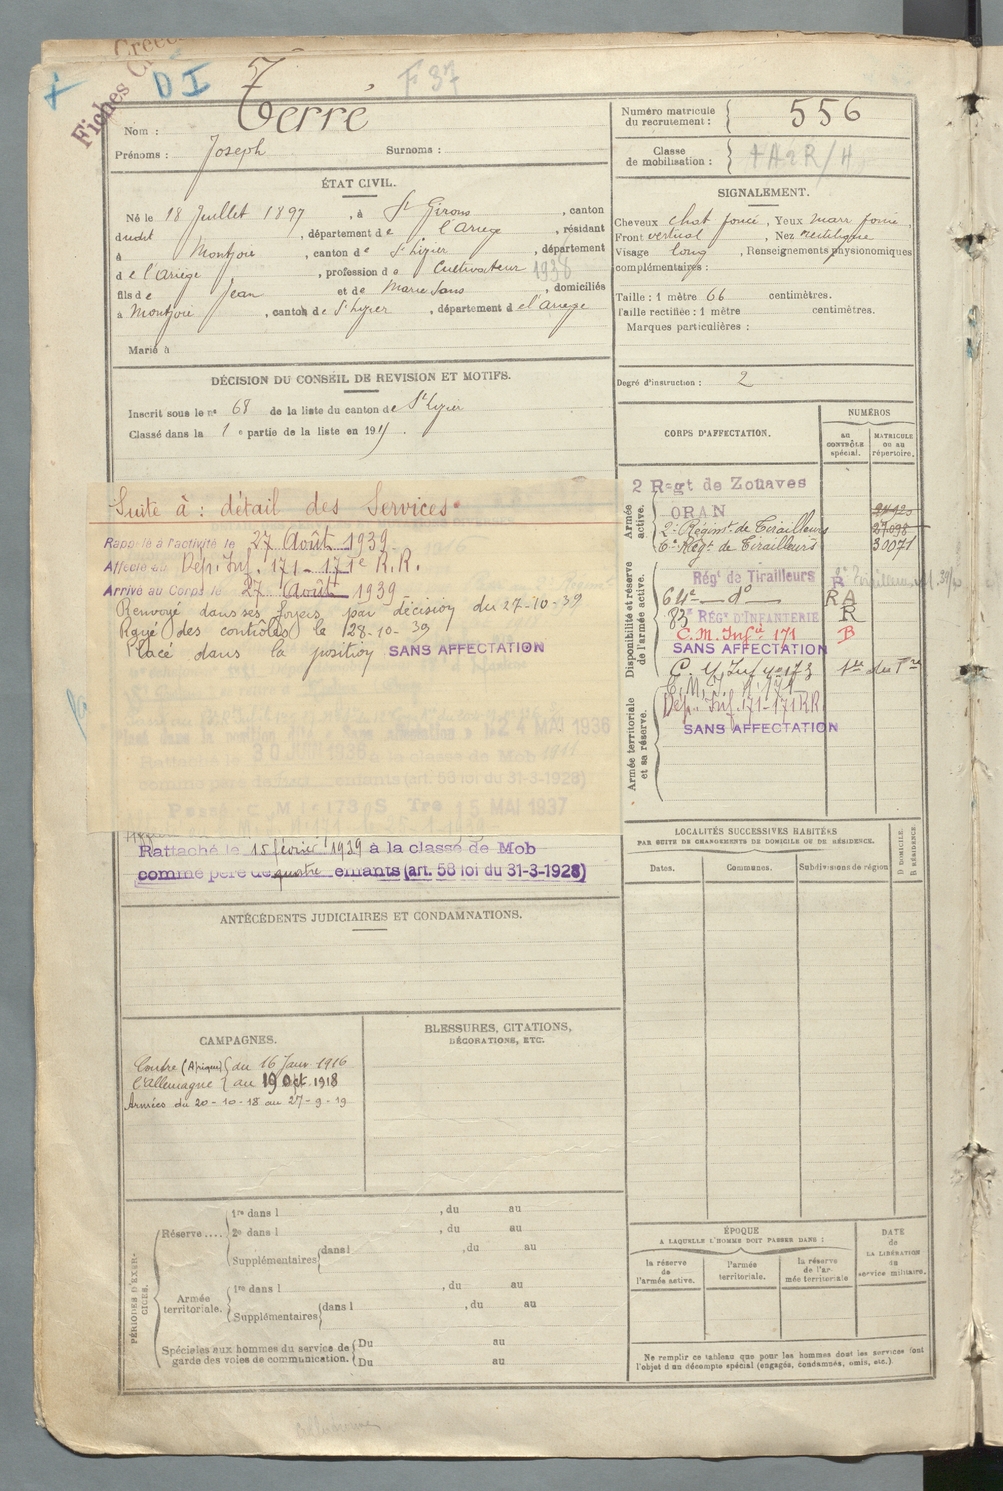 Fiches
D I
F 37
Nom : Terré
Prénoms : Joseph Surnoms :
Numéro matricule du recrutement : 556
Classe de mobilisation :
ÉTAT CIVIL.
Né le 18 Juillet 1897, à St Girons, canton
dudit, département de l'Ariège, résidant
à Montjoie, canton de St Lizier, département
de l'Ariège, profession de Cultivateur 1938
fils de Jean et de Marie Sans, domiciliés
à Montjoie, canton de St Lizier, département de l'Ariège
Marié à
SIGNALEMENT.
Cheveux chat foncé, Yeux marr foncé,
Front vertical, Nez rectiligne
Visage long, Renseignements physionomiques
complémentaires :
Taille : 1 mètre 66 centimètres.
Taille rectifiée : 1 mètre centimètres.
Marques particulières :
Degré d'instruction : 2
DÉCISION DU CONSEIL DE REVISION ET MOTIFS.
Inscrit sous le n° 68 de la liste du canton de St Lizier
Classé dans la 1e partie de la liste en 191
Suite à : détail des Services
Rappelé à l'activité le 27 Août 1939
Affecté au Dép. Inf. 171 - 171e R.R.
Arrivé au Corps le 27 Août 1939
Renvoyé dans ses foyers par décision du 27-10-39
Rayé des contrôles le 28-10-39
Placé dans la position SANS AFFECTATION
24 MAI 1936
Rattaché
la classe de Mob
enfants (art. 58 loi du 31-3-1928)
Passé C M I 173 S Tre 15 MAI 1937
Rattaché le 15 février 1939 à la classe de Mob
comme père de quatre enfants (art. 58 loi du 31-3-1928)
CORPS D'AFFECTATION.
NUMÉROS
au CONTRÔLE spécial.
MATRICULE ou au répertoire.
Armée active.
2 Regt de Zouaves
ORAN
2e Régimt de Tirailleurs 27098
6e Régt de Tirailleurs 30071
Disponibilité et réserve de l'armée active.
Régt de Tirailleurs R
64e do R A
83e RÉGt D'INFANTERIE R
C. M. Infie 171 B
SANS AFFECTATION
Armée territoriale et sa réserve.
Dép. Inf. 171-171 RR
SANS AFFECTATION
LOCALITÉS SUCCESSIVES HABITÉES
PAR SUITE DE CHANGEMENTS DE DOMICILE OU DE RÉSIDENCE.
Dates. Communes. Subdivisions de région
D DOMICILE.
R RÉSIDENCE.
ANTÉCÉDENTS JUDICIAIRES ET CONDAMNATIONS.
CAMPAGNES.
Contre (Afrique) du 16 Janv 1916
l'Allemagne au 19 Oct. 1918
Armées du 20-10-18 au 27-9-19
BLESSURES, CITATIONS,
DÉCORATIONS, ETC.
PÉRIODES D'EXERCICES.
Réserve....
1re dans l , du au
2e dans l , du au
Supplémentaires dans l , du au
Armée territoriale.
1re dans l , du au
Supplémentaires dans l , du au
Spéciales aux hommes du service de garde des voies de communication.
Du au
Du au
ÉPOQUE
A LAQUELLE L'HOMME DOIT PASSER DANS :
la réserve de l'armée active.
l'armée territoriale.
la réserve de l'armée territoriale
DATE de LA LIBÉRATION du service militaire.
Ne remplir ce tableau que pour les hommes dont les services font
l'objet d'un décompte spécial (engagés, condamnés, omis, etc.)